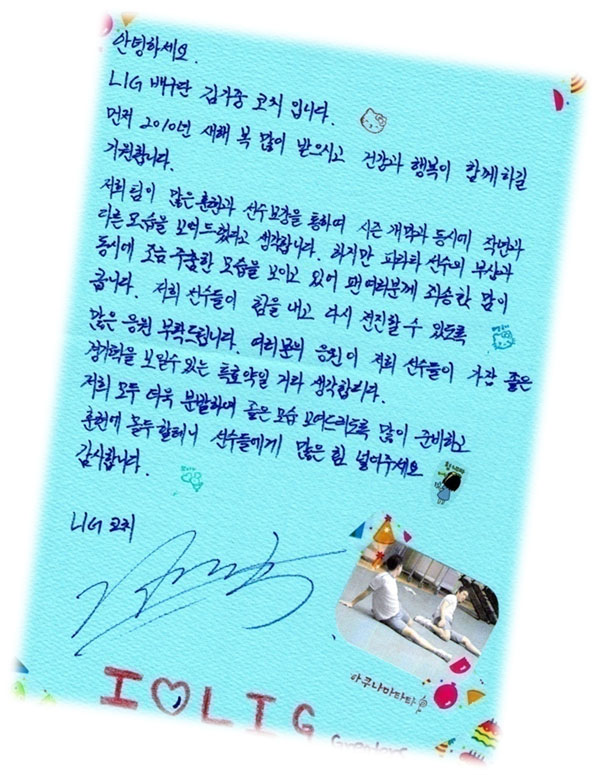 안녕하세요.
LIG 배구단 김기중 코치 입니다.
먼저 2010년 새해 복 많이 받으시고 건강과 행복이 함께하길
기원합니다.
저희팀이 많은 훈련과 선수보강을 통하여 시즌 개막과 동시에 작년과
다른 모습을 보여드렸다고 생각합니다. 하지만 피라타 선수의 부상과
동시에 조금 주춤한 모습을 보이고 있어 팬여러분께 죄송한 맘이
큽니다. 저희 선수들이 힘을 내고 다시 전진할 수 있도록
많은 응원 부탁드립니다. 여러분의 응원이 저희 선수들이 가장 좋은
경기력을 보일수 있는 특효약일 거라 생각합니다.
저희 모두 더욱 분발하여 좋은 모습 보여드리도록 많이 준비하고
훈련에 몰두 할테니 선수들에게 많은 힘 넣어주세요
감사합니다.
LIG 코치
아쿠나마타타
I ♡ LIG
Greaters